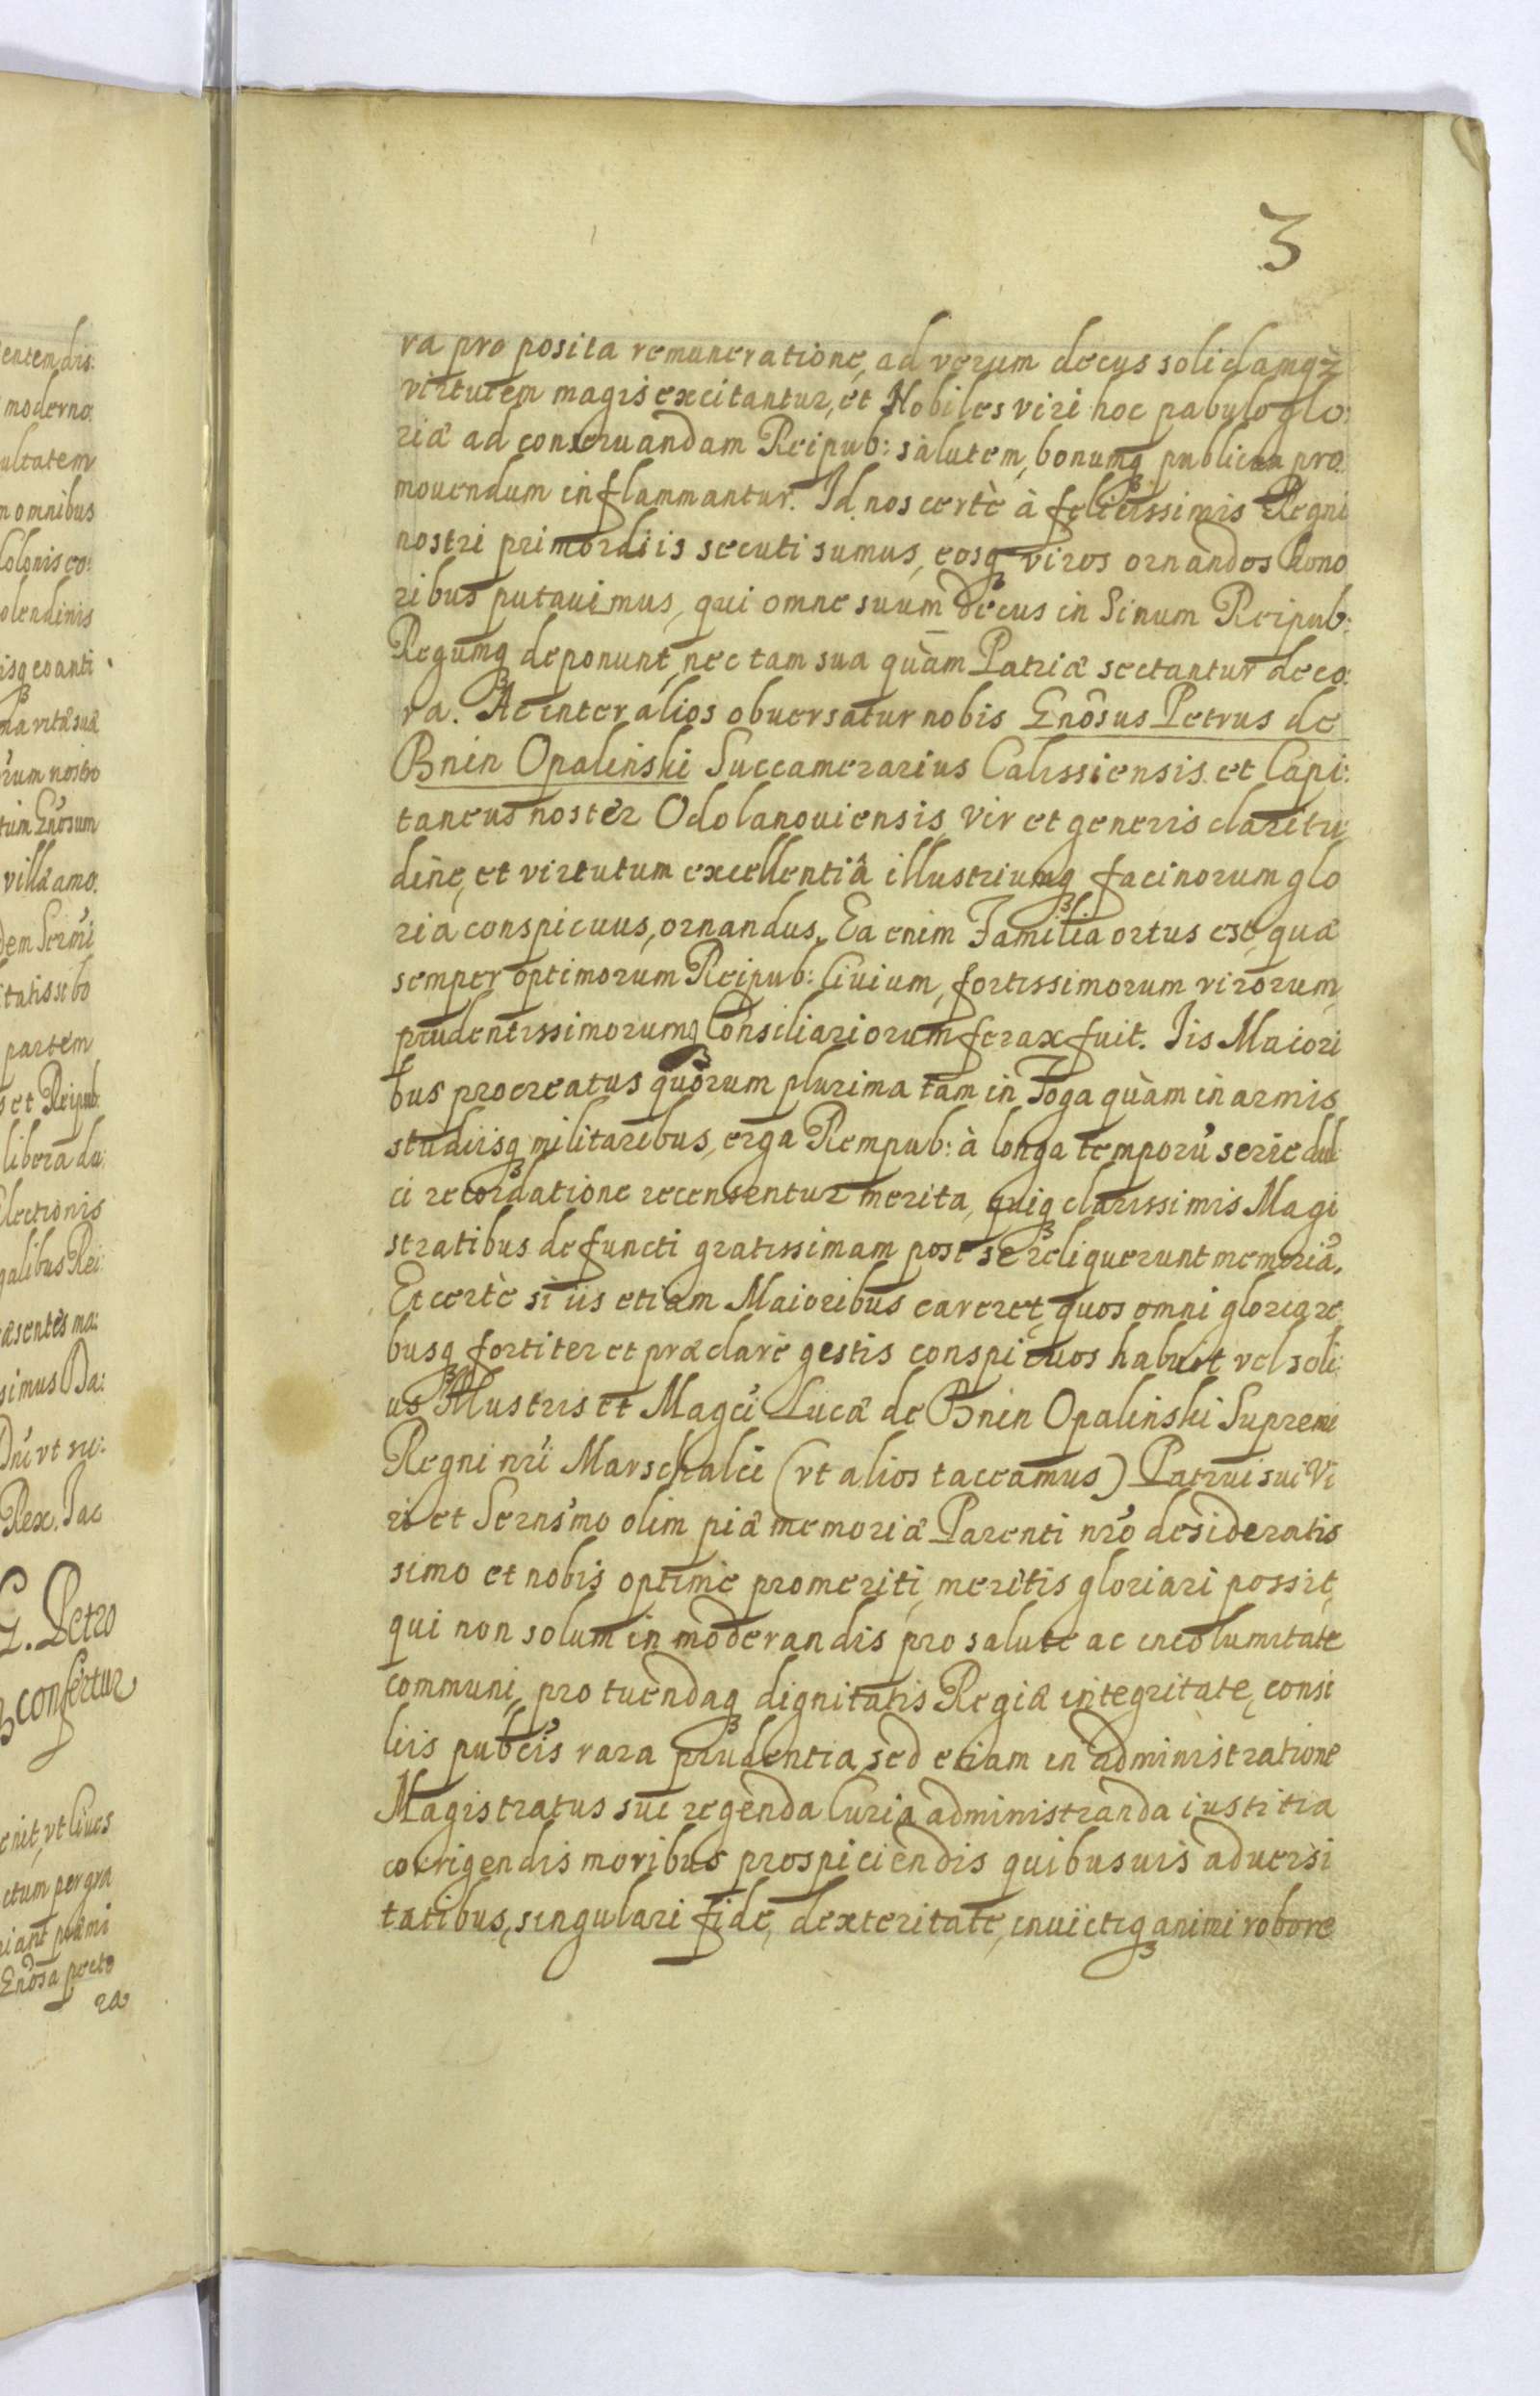 entem dis:
moderno
ultatem
n omnibus
Colonis co:
olendinis
isq3 eo anti
ma vitæ suæ
rum nostro
tum Gnosum
villæ amo.
dem Sermi
itatis sebo
partem
s et Reipub:
libera da:
Electionis
galibus Rei
æsentes ma:
simus Da:
Dni vt su:
Rex. Jac
G. Petro
confertur
enit, vt Ciues
ctum per gra
niant præmi
Enosa pecto
ra
3
ra proposita remuneratione, ad verum decus solidamq3
virtutem magis excitantur, et Nobiles viri hoc pabulo glo:
riæ ad conseruandam Reipub: salutem, bonumq3 publicum pro:
mouendum inflammantur. Id nos certè à felicissimis Regni
nostri primordiis secuti sumus, eosq3 viros ornandos hono
ribus putauimus, qui omne suum decus in Sinum Reipub:
Regumq3 deponunt, nec tam sua quàm Patriæ sectantur deco:
ra. Ac inter alios obuersatur nobis Gnôsus Petrus de
Bnin Opalinski Succamerarius Calissiensis et Capi:
taneus noster Odolanouiensis, Vir et generis claritu
dine, et virtutum excellentiâ illustriumq3 facinorum glo
ria conspicuus, ornandus. Ea enim Familia ortus est, quæ
semper optimorum Reipub: Ciuium, fortissimorum virorum,
prudentissimorumq3 Consiliariorum ferax fuit. Iis Maiori
bus procreatus quorum plurima tam in Toga quàm in armis
studiisq3 militaribus, erga Rempub: à longa temporũ serie dul
ci recordatione recensentur merita, quiq3 clarissimis Magi
stratibus defuncti gratissimam post se reliquerunt memoriã.
Et certè si iis etiam Maioribus careret, quos omni gloria re
busq3 fortiter et præclarè gestis conspicuos habuit vel soli:
us Illustris et Magci Lucæ de Bnin Opalinski Supremi
Regni nri Marschalci (vt alios taceamus) Patrui sui Vi
ri et Sernsmo olim piæ memoriæ Parenti nro desideratis
simo et nobis optimè promeriti, meritis gloriari possit,
qui non solum in moderandis pro salute ac incolumitate
communi, pro tuendaq3 dignitatis Regiæ integritate, consi
liis pubcis rara prudentia, sed etiam in administratione
Magistratus sui regenda Curia administranda iustitia
corrigendis moribus prospiciendis quibusuis aduersi
tatibus, singulari fide, dexteritate, inuictiq3 animi robore